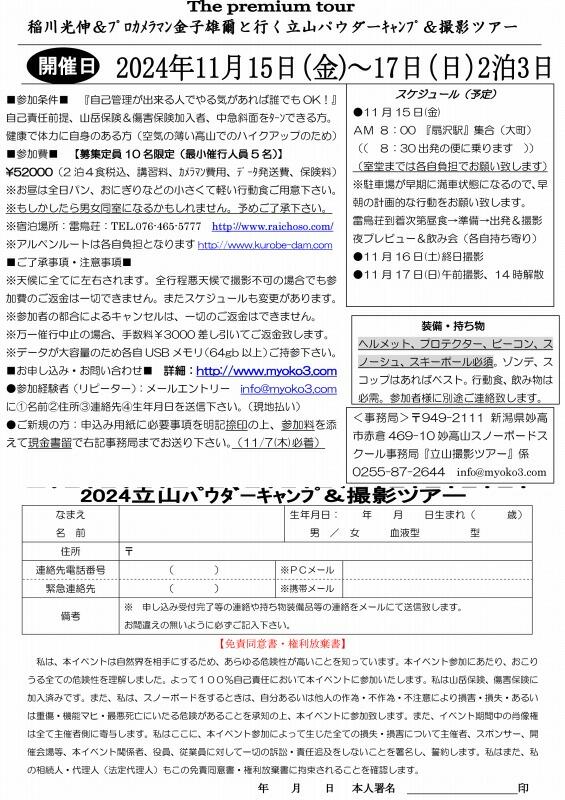 The premium tour
稲川光伸＆ﾌﾟﾛｶﾒﾗﾏﾝ金子雄爾と行く立山パウダーｷｬﾝﾌﾟ＆撮影ツアー
開催日 2024年11月15日(金)～17日(日)2泊3日
■参加条件■ 『自己管理が出来る人でやる気があれば誰でもＯＫ！』
自己責任前提、山岳保険＆傷害保険加入者、中急斜面をﾀｰﾝできる方。
健康で体力に自身のある方（空気の薄い高山でのハイクアップのため）
■参加費■ 【募集定員１０名限定（最小催行人員５名）】
¥52000（２泊４食税込、講習料、ｶﾒﾗﾏﾝ費用、ﾃﾞｰﾀ発送費、保険料）
※お昼は全日パン、おにぎりなどの小さくて軽い行動食ご用意下さい。
※もしかしたら男女同室になるかもしれません。予めご了承下さい。
※宿泊場所：雷鳥荘：TEL.076-465-5777 http://www.raichoso.com/
※アルペンルートは各自負担となります http://www.kurobe-dam.com
■ご了承事項・注意事項■
※天候に全てに左右されます。全行程悪天候で撮影不可の場合でも参
加費のご返金は一切できません。またスケジュールも変更があります。
※参加者の都合によるキャンセルは、一切のご返金はできません。
※万一催行中止の場合、手数料￥3000差し引いてご返金致します。
※データが大容量のため各自ＵＳＢメモリ(64gb以上)ご持参下さい。
■お申し込み・お問い合わせ■ 詳細：http://www.myoko3.com
●参加経験者（リピーター）：メールエントリー info@myoko3.com
に①名前②住所③連絡先④生年月日を送信下さい。（現地払い）
●ご新規の方：申込み用紙に必要事項を明記捺印の上、参加料を添
えて現金書留で右記事務局までお送り下さい。（11/7(木)必着）
スケジュール（予定）
●１１月１５日(金)
ＡＭ ８：００ 『扇沢駅』集合（大町）
（（ ８：３０出発の便に乗ります ））
（室堂までは各自負担でお願い致します）
※駐車場が早期に満車状態になるので、早
朝の計画的な行動をお願い致します。
雷鳥荘到着次第昼食→準備→出発＆撮影
夜プレビュー＆飲み会（各自持ち寄り）
●１１月１６日(土)終日撮影
●１１月１７日(日)午前撮影、１４時解散
装備・持ち物
ヘルメット、プロテクター、ビーコン、ス
ノーシュ、スキーポール必須。ゾンデ、ス
コップはあればベスト。行動食、飲み物は
必需。参加者様に別途ご連絡致します。
＜事務局＞〒949-2111 新潟県妙高
市赤倉469-10妙高山スノーボードス
クール事務局『立山撮影ツアー』係
0255-87-2644 info@myoko3.com
2024立山ﾊﾟｳﾀﾞｰｷｬﾝﾌﾟ＆撮影ツアー
なまえ 生年月日： 年 月 日生まれ（ 歳）
名 前 男 ／ 女 血液型 型
住所 〒
連絡先電話番号 （ ） ※ＰＣメール
緊急連絡先 （ ） ※携帯メール
備考 ※ 申し込み受付完了等の連絡や持ち物装備品等の連絡をメールにて送信致します。
お間違えの無いように必ずご記入下さい。
【免責同意書・権利放棄書】
私は、本イベントは自然界を相手にするため、あらゆる危険性が高いことを知っています。本イベント参加にあたり、おこり
うる全ての危険性を理解しました。よって１００％自己責任において本イベントに参加いたします。私は山岳保険、傷害保険に
加入済みです。また、私は、スノーボードをするときは、自分あるいは他人の作為・不作為・不注意により損害・損失・あるい
は重傷・機能マヒ・最悪死亡にいたる危険があることを承知の上、本イベントに参加致します。また、イベント期間中の肖像権
は全て主催者側に寄与します。私はここに、本イベント参加によって生じた全ての損失・損害について主催者、スポンサー、開
催会場等、本イベント関係者、役員、従業員に対して一切の訴訟・責任追及をしないことを署名し、誓約します。私はまた、私
の相続人・代理人（法定代理人）もこの免責同意書・権利放棄書に拘束されることを確認します。
年 月 日 本人署名 印